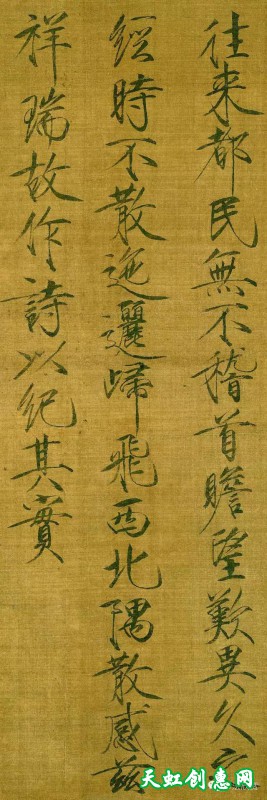 往来都民無不稽首瞻望歎異久之
經時不散迤邐歸飛西北隅散感兹
祥瑞故作詩以紀其實
天虹创惠网